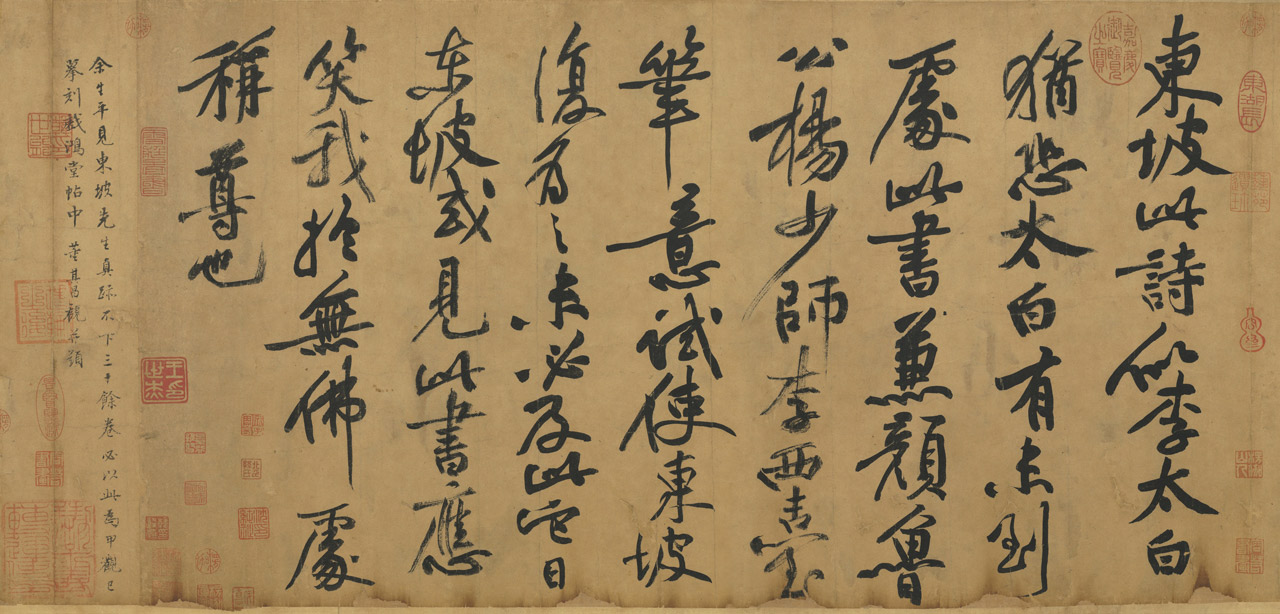 東坡此詩似李太白
猶恐太白有未到
處此書兼顏魯
公楊少師李西臺
筆意試使東坡
復為之未必及此它日
東坡或見此書應
笑我於無佛處
稱尊也
余生平見東坡先生真跡不下三十餘卷必以此為甲觀已
摹刻戲鴻堂帖中 董其昌觀并題
嘉慶御覽之寶